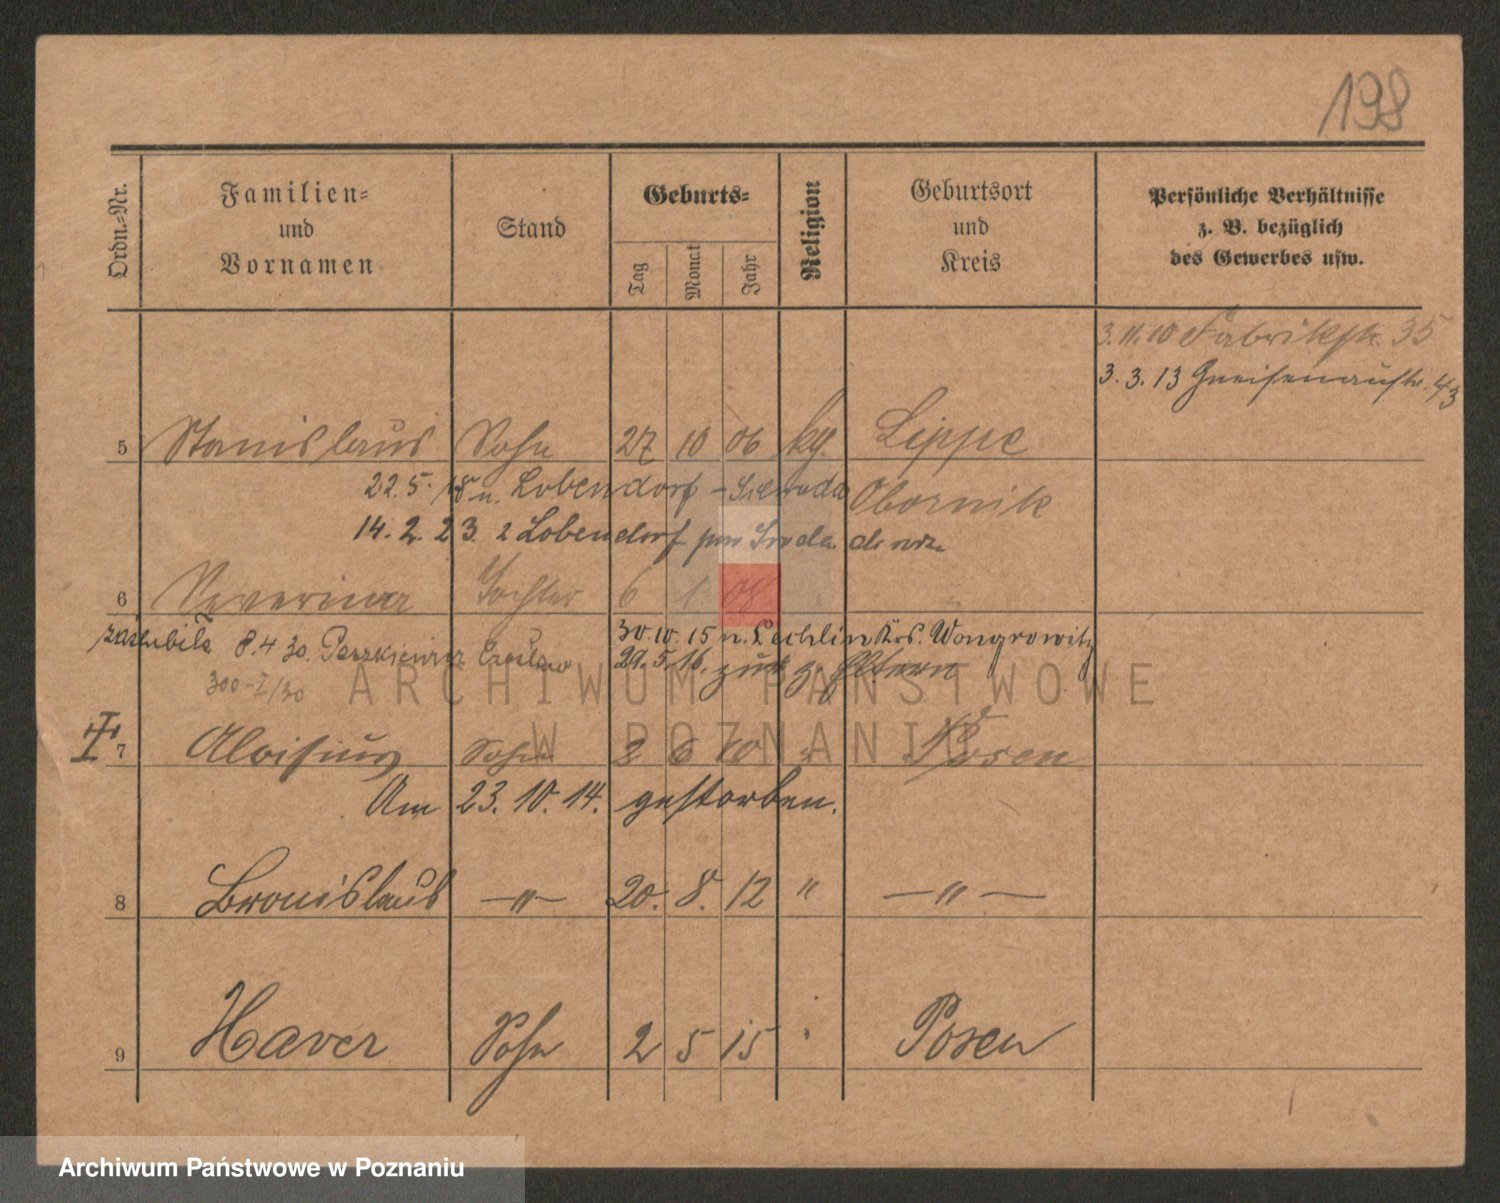 198
Ordn.-Nr.
Familien-
und
Vornamen
Stand
Geburts-
Tag
Monat
Jahr
Religion
Geburtsort
und
Kreis
Persönliche Verhältnisse
z. B. bezüglich
des Gewerbes usw.
3.11.10 Fabrikstr. 35
3.3.13 Gneisenaustr. 43
5 Stanislaus Sohn 27 10 06 kg. Lippe
22.5.18 n. Lobendorf - Schroda Obornik
14.2.23. z Lobendorf pow Sroda
6 Severina Tochter 6 1 08 "
zaślubiła 8.4 30. Czesław
30.10.15 n. Lechlin Krs. Wongrowitz
29.5.16. zurk z. Eltern
300-I/30
ARCHIWUM PAŃSTWOWE
W POZNANIU
7 Aloisius Sohn 2 6 10 " Posen
Am 23.10.14. gestorben.
8 Bronislaus —"— 20. 8. 12 " —"—
9 Xaver Sohn 2 5 15 " Posen
Archiwum Państwowe w Poznaniu